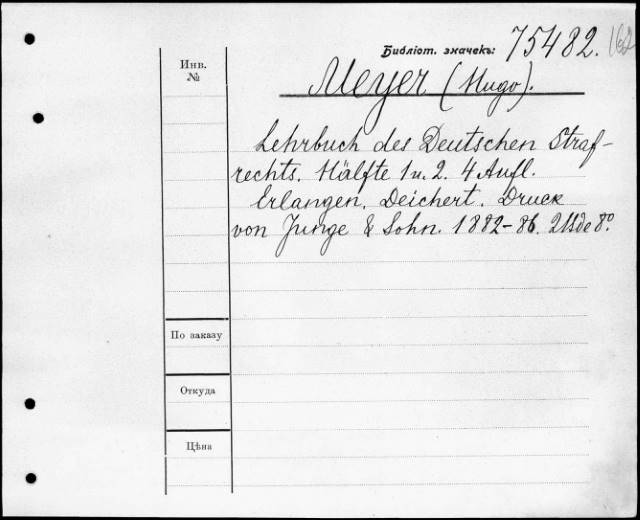 Библіот. значекъ: 75482. 162
Инв.
№
Meyer (Hugo).
Lehrbuch des Deutschen Straf-
rechts. Hälfte 1 u. 2. 4 Aufl.
Erlangen, Deichert. Druck
von Junge & Sohn. 1882-86. 2 Bde 8º.
По заказу
Откуда
Цѣна